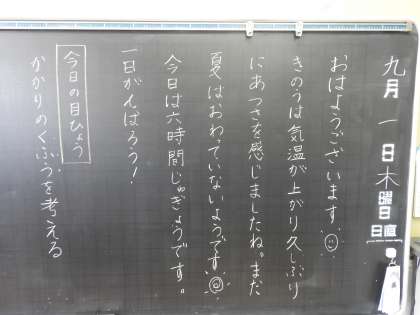 九月一日木曜日
日直
おはようございます。
きのうは気温が上がり久しぶり
にあつさを感じましたね。まだ
夏はおわっていないようです。
今日は六時間じゅぎょうです。
一日がんばろう!
今日の目ひょう
かかりのくふうを考える